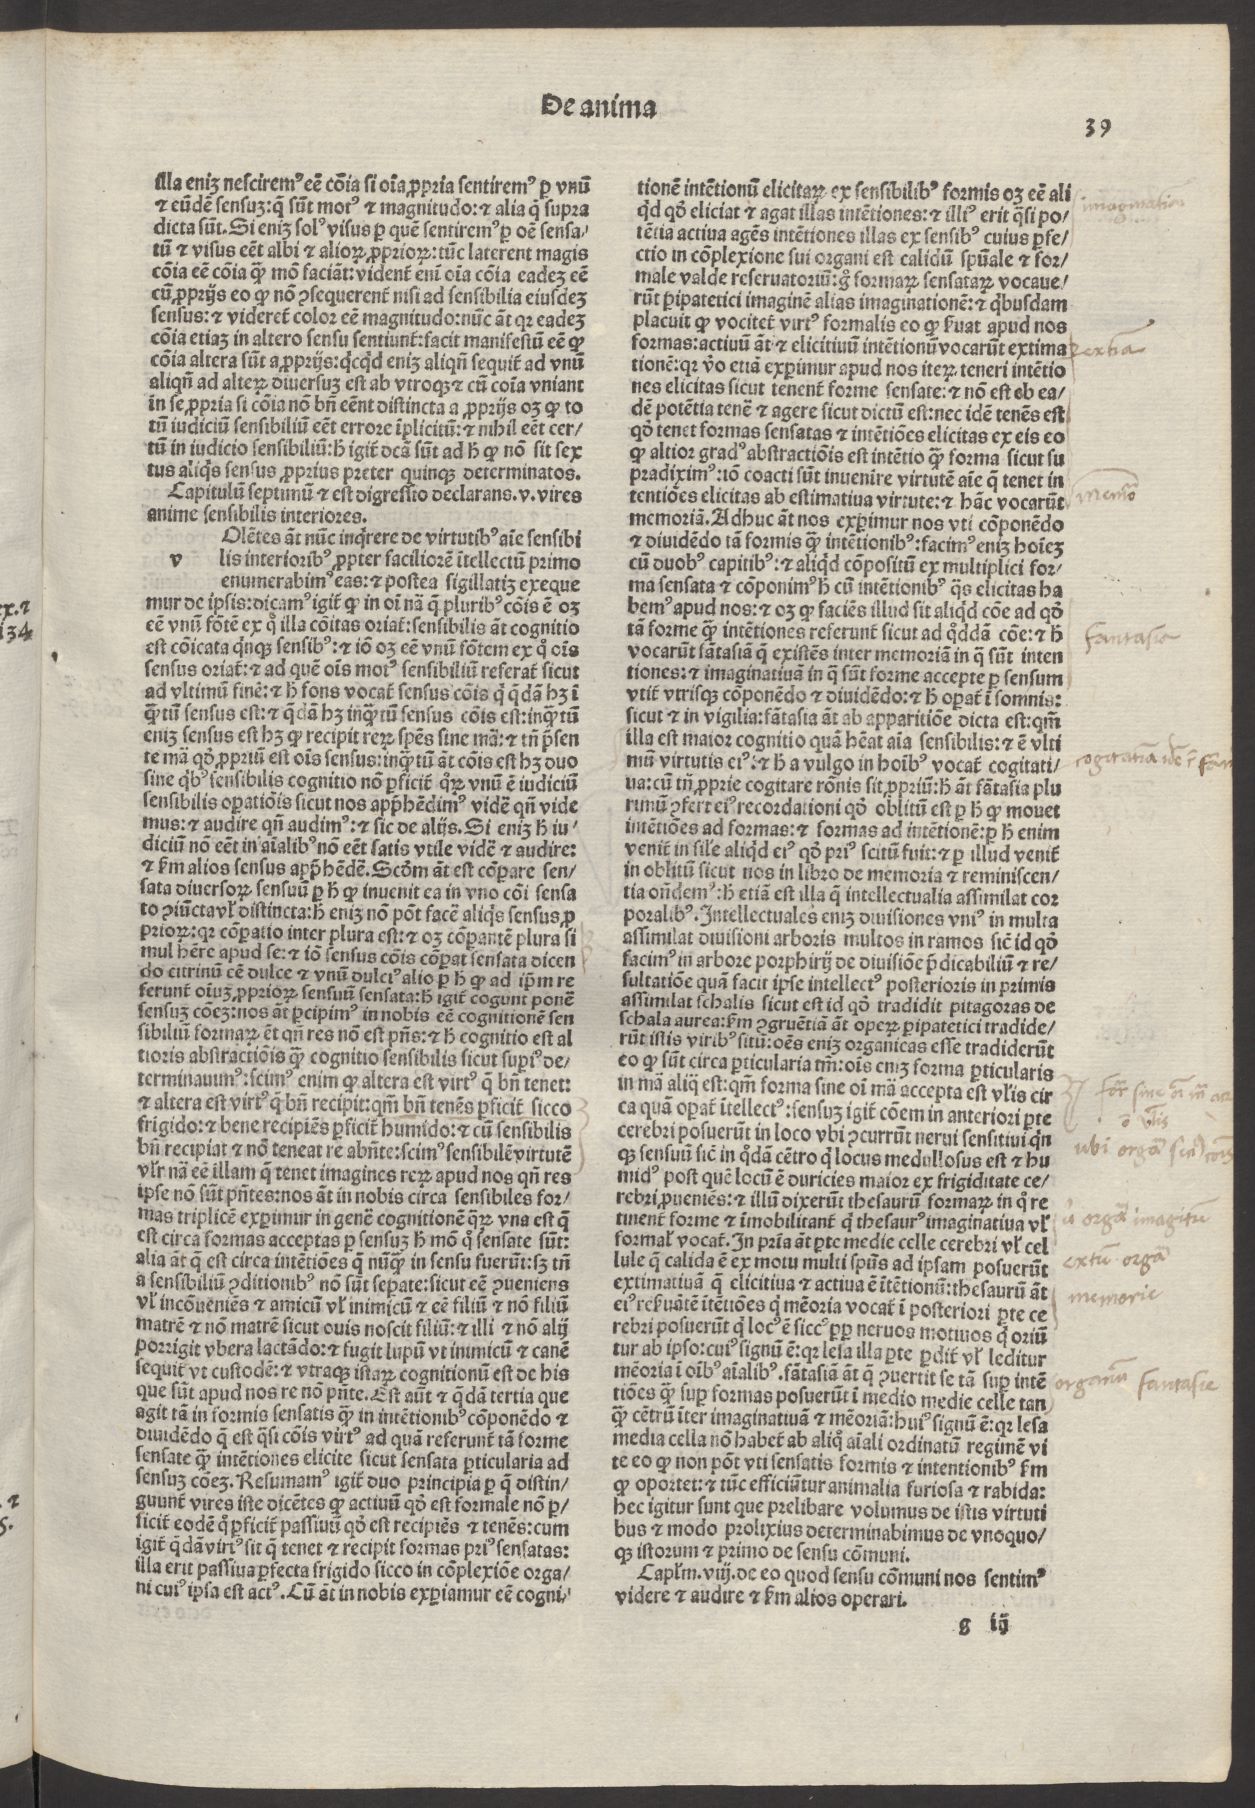 De anima
39
illa eniꝫ nesciremꝰ eē cōia si oīa ꝓpria sentiremꝰ ꝑ vnū
⁊ eūdē sensuꝫ: q̄ sūt motꝰ ⁊ magnitudo: ⁊ alia q̄ supra
dicta sūt. Si eniꝫ solꝰ visus ꝑ quē sentiremꝰ ꝑ oē sensa⸗
tū ⁊ visus eēt albi ⁊ alioꝝ ꝓprioꝝ: tūc laterent magis
cōia eē cōia ꝙ̄ mō faciāt: vident̄ enī oīa cōia eadeꝫ eē
cū ꝓprijs eo ꝙ nō ꝯsequerent̄ nisi ad sensibilia eiusdeꝫ
sensus: ⁊ videret̄ color eē magnitudo: nūc āt qꝛ eadeꝫ
cōia etiaꝫ in altero sensu sentiunt̄: facit manifestū eē ꝙ
cōia altera sūt a ꝓprijs: qͥcqͥd eniꝫ aliqñ sequit̄ ad vnū
aliqñ ad alteꝝ diuersuꝫ est ab vtroqꝫ ⁊ cū coīa vniant
in se ꝓpria si cōia nō bñ eēnt distincta a ꝓprijs oꝫ ꝙ to
tū iudiciū sensibiliū eēt errore īplicitū: ⁊ nihil eēt cer⸗
tū in iudicio sensibiliū: ħ igit̄ dcā sūt ad ħ ꝙ nō sit sex
tus aliqͥs sensus ꝓprius preter quinqꝫ determinatos.
Capitulū septimū ⁊ est digressio declarans .v. vires
anime sensibilis interiores.
Olētes āt nūc inqͥrere de virtutibꝰ aīe sensibi
v lis interioribꝰ ꝓpter faciliorē ītellectū primo
enumerabimꝰ eas: ⁊ postea sigillatiꝫ exeque
mur de ipsis: dicamꝰ igit̄ ꝙ in oī nā q̄ pluribꝰ cōis ē oꝫ
eē vnū fōtē ex qͦ illa cōitas oriat̄: sensibilis āt cognitio
est cōicata qͥnqꝫ sensibꝰ: ⁊ iō oꝫ eē vnū fōtem ex qͦ oīs
sensus oriat̄: ⁊ ad quē oīs motꝰ sensibiliū referat̄ sicut
ad vltimū finē: ⁊ ħ fons vocat̄ sensus cōis q̄ q̄dā hꝫ ī
ꝙ̄tū sensus est: ⁊ q̄dā hꝫ inꝙ̄tū sensus cōis est: inꝙ̄tū
eniꝫ sensus est hꝫ ꝙ recipit reꝝ spēs sine mā: ⁊ tñ p̄sen
te mā qð ꝓpriū est oīs sensus: inꝙ̄tū āt cōis est hꝫ duo
sine qͥbꝰ sensibilis cognitio nō ꝑficit̄ qͣꝝ vnū ē iudiciū
sensibilis oꝑatiōis sicut nos app̄hēdimꝰ vidē qñ vide
mus: ⁊ audire qñ audimꝰ: ⁊ sic de alijs. Si eniꝫ ħ iu⸗
diciū nō eēt in aīalibꝰ nō eēt satis vtile vidē ⁊ audire:
⁊ ẜm alios sensus app̄hēdē. Scðm āt est cōpare sen⸗
sata diuersoꝝ sensuū ꝑ ħ ꝙ inuenit ea in vno cōi sensa
to ꝯiūcta vł distincta: ħ eniꝫ nō pōt facē aliqͥs sensus ꝓ
prioꝝ: qꝛ cōꝑatio inter plura est: ⁊ oꝫ cōꝑantē plura si
mul hēre apud se: ⁊ iō sensus cōis cōꝑat sensata dicen
do citrinū eē dulce ⁊ vnū dulciꝰ alio ꝑ ħ ꝙ ad ip̄m re
ferunt̄ oīuꝫ ꝓprioꝝ sensuū sensata: ħ igit̄ cogunt ponē
sensuꝫ cōeꝫ: nos āt ꝑcipimꝰ in nobis eē cognitionē sen
sibiliū formaꝝ ēt qñ res nō est pñs: ⁊ ħ cognitio est al
tioris abstractiōis ꝙ̄ cognitio sensibilis sicut supiꝰ de⸗
terminauimꝰ: scimꝰ enim ꝙ altera est virtꝰ q̄ bñ tenet:
⁊ altera est virtꝰ q̄ bñ recipit: qm̄ bñ tenēs ꝑficit̄ sicco
frigido: ⁊ bene recipiēs ꝑficit̄ humido: ⁊ cū sensibilis
bñ recipiat ⁊ nō teneat re abñte: scimꝰ sensibilē virtutē
vłr nā eē illam q̄ tenet imagines reꝝ apud nos qñ res
ipse nō sūt pñtes: nos āt in nobis circa sensibiles for⸗
mas triplicē expimur in genē cognitionē qͣꝝ vna est q̄
est circa formas acceptas ꝑ sensuꝫ ħ mō qͦ sensate sūt:
alia āt q̄ est circa intētiōes q̄ nūꝙ̄ in sensu fuerūt: sꝫ tñ
a sensibiliū ꝯditionibꝰ nō sūt sepate: sicut eē ꝯueniens
vł incōueniēs ⁊ amicū vł inimicū ⁊ eē filiū ⁊ nō filiū
matrē ⁊ nō matrē sicut ouis noscit filiū: ⁊ illi ⁊ nō alij
porrigit vbera lactādo: ⁊ fugit lupū vt inimicū ⁊ canē
sequit̄ vt custodē: ⁊ vtraqꝫ istaꝝ cognitionū est de his
que sūt apud nos re nō pñte. Est aūt ⁊ q̄dā tertia que
agit tā in formis sensatis ꝙ̄ in intētionibꝰ cōponēdo ⁊
diuidēdo q̄ est qͣsi cōis virtꝰ ad quā referunt̄ tā forme
sensate ꝙ̄ intētiones elicite sicut sensata ꝑticularia ad
sensuꝫ cōeꝫ. Resumamꝰ igit̄ duo principia ꝑ q̄ distin⸗
guunt̄ vires iste dicētes ꝙ actiuū qð est formale nō ꝑ⸗
ficit̄ eodē qͦ ꝑficit̄ passiuū qð est recipiēs ⁊ tenēs: cum
igit̄ q̄dā virtꝰ sit q̄ tenet ⁊ recipit formas priꝰ sensatas:
illa erit passiua ꝑfecta frigido sicco in cōplexiōe orga⸗
ni cuiꝰ ipsa est actꝰ. Cū āt in nobis expiamur eē cogni⸗
tionē intētionū elicitaꝝ ex sensibilibꝰ formis oꝫ eē ali
qͥd qð eliciat ⁊ agat illas intētiones: ⁊ illꝰ erit qͣsi po⸗
tētia actiua agēs intētiones illas ex sensibꝰ cuius ꝑfe⸗
ctio in cōplexione sui organi est calidū spūale ⁊ for⸗
male valde reseruatoriū: gͦ formaꝝ sensataꝝ vocaue⸗
rūt ꝑipatetici imaginē alias imaginationē: ⁊ qͥbusdam
placuit ꝙ vocitet̄ virtꝰ formalis eo ꝙ ẜuat apud nos
formas: actiuū āt ⁊ elicitiuū intētionū vocarūt extima
tionē: qꝛ vͦo etiā expimur apud nos iteꝝ teneri intētio
nes elicitas sicut tenent̄ forme sensate: ⁊ nō est ob ea⸗
dē potētia tenē ⁊ agere sicut dictū est: nec idē tenēs est
qð tenet formas sensatas ⁊ intētiōes elicitas ex eis eo
ꝙ altior gradꝰ abstractiōis est intētio ꝙ̄ forma sicut su
pradiximꝰ: iō coacti sūt inuenire virtutē aīe q̄ tenet in
tentiōes elicitas ab estimatiua virtute: ⁊ hāc vocarūt
memoriā. Adhuc āt nos expimur nos vti cōponēdo
⁊ diuidēdo tā formis ꝙ̄ intētionibꝰ: facimꝰ eniꝫ hoīeꝫ
cū duobꝰ capitibꝰ: ⁊ aliqͥd cōpositū ex multiplici for⸗
ma sensata ⁊ cōponimꝰ ħ cū intētionibꝰ qͣs elicitas ha
bemꝰ apud nos: ⁊ oꝫ ꝙ faciēs illud sit aliqͥd cōe ad qð
tā forme ꝙ̄ intētiones referunt̄ sicut ad qͦddā cōe: ⁊ ħ
vocarūt fātasiā q̄ existēs inter memoriā in q̄ sūt inten
tiones: ⁊ imaginatiuā in q̄ sūt forme accepte ꝑ sensum
vtit̄ vtrisqꝫ cōponēdo ⁊ diuidēdo: ⁊ ħ oꝑat̄ ī somnis:
sicut ⁊ in vigilia: fātasia āt ab apparitiōe dicta est: qm̄
illa est maior cognitio quā hēat aīa sensibilis: ⁊ ē vlti
mū virtutis eiꝰ: ⁊ ħ a vulgo in hoībꝰ vocat̄ cogitati⸗
ua: cū tñ ꝓprie cogitare rōnis sit ꝓpriū: ħ āt fātasia plu
rimū ꝯfert eiꝰ recordationi qð oblitū est ꝑ ħ ꝙ mouet
intētiōes ad formas: ⁊ formas ad intētionē: ꝑ ħ enim
venit̄ in sile aliqͥd eiꝰ qð priꝰ scitū fuit: ⁊ ꝑ illud venit̄
in oblitū sicut nos in libro de memoria ⁊ reminiscen⸗
tia oñdemꝰ: ħ etiā est illa q̄ intellectualia assimilat cor
poralibꝰ. Intellectuales eniꝫ diuisiones vniꝰ in multa
assimilat diuisioni arboris multos in ramos sic̄ id qð
facimꝰ in arbore porphirij de diuisiōe p̄dicabiliū ⁊ re⸗
sultatiōe quā facit ipse intellectꝰ posterioris in primis
assimilat schalis sicut est id qð tradidit pitagoras de
schala aurea: ẜm ꝯgruētiā āt opeꝝ ꝑipatetici tradide⸗
rūt istis viribꝰ sitū: oēs eniꝫ organicas esse tradiderūt
eo ꝙ sūt circa ꝑticularia tm̄: oīs eniꝫ forma ꝑticularis
in mā aliq̄ est: qm̄ forma sine oī mā accepta est vłis cir
ca quā oꝑat̄ ītellectꝰ: sensuꝫ igit̄ cōem in anteriori ꝑte
cerebri posuerūt in loco vbi ꝯcurrūt nerui sensitiui qͥn
qꝫ sensuū sic̄ in qͦdā cētro q̄ locus medullosus est ⁊ hu
midꝰ post quē locū ē duricies maior ex frigiditate ce⸗
rebri ꝓueniēs: ⁊ illū dixerūt thesaurū formaꝝ in qͦ re
tinent̄ forme ⁊ īmobilitant̄ q̄ thesaurꝰ imaginatiua vł
formał vocat̄. In pria āt ꝑte medie celle cerebri vł cel
lule q̄ calida ē ex motu multi spūs ad ipsam posuerūt
extimatiuā q̄ elicitiua ⁊ actiua ē ītētionū: thesaurū āt
eiꝰ reẜuātē ītētiōes q̄ mēoria vocat̄ ī posteriori ꝑte ce
rebri posuerūt q̄ locꝰ ē siccꝰ ꝓꝑ neruos motiuos q̄ oriū
tur ab ipso: cuiꝰ signū ē: qꝛ lesa illa ꝑte ꝑdit̄ vł leditur
mēoria ī oībꝰ aīalibꝰ. fātasiā āt q̄ ꝯuertit se tā suꝑ intē
tiōes ꝙ̄ suꝑ formas posuerūt ī medio medie celle tan
ꝙ̄ cētrū īter imaginatiuā ⁊ mēoriā: huiꝰ signū ē: qꝛ lesa
media cella nō habet̄ ab aliqͦ aīali ordinatū regimē vi
te eo ꝙ non pōt vti sensatis formis ⁊ intentionibꝰ ẜm
ꝙ oportet: ⁊ tūc efficiūtur animalia furiosa ⁊ rabida:
hec igitur sunt que prelibare volumus de istis virtuti
bus ⁊ modo prolixius determinabimus de vnoquo⸗
qꝫ istorum ⁊ primo de sensu cōmuni.
Caplm̄ .viij. de eo quod sensu cōmuni nos sentimꝰ
videre ⁊ audire ⁊ ẜm alios operari.
g iij
imaginatio
extīa
memōꝰ
fantasia
cogitatīa idē ē fan
ubi orgā
orgā imagitiū
extīū orgā
memorie
organū fantasie
ex. ⁊
134